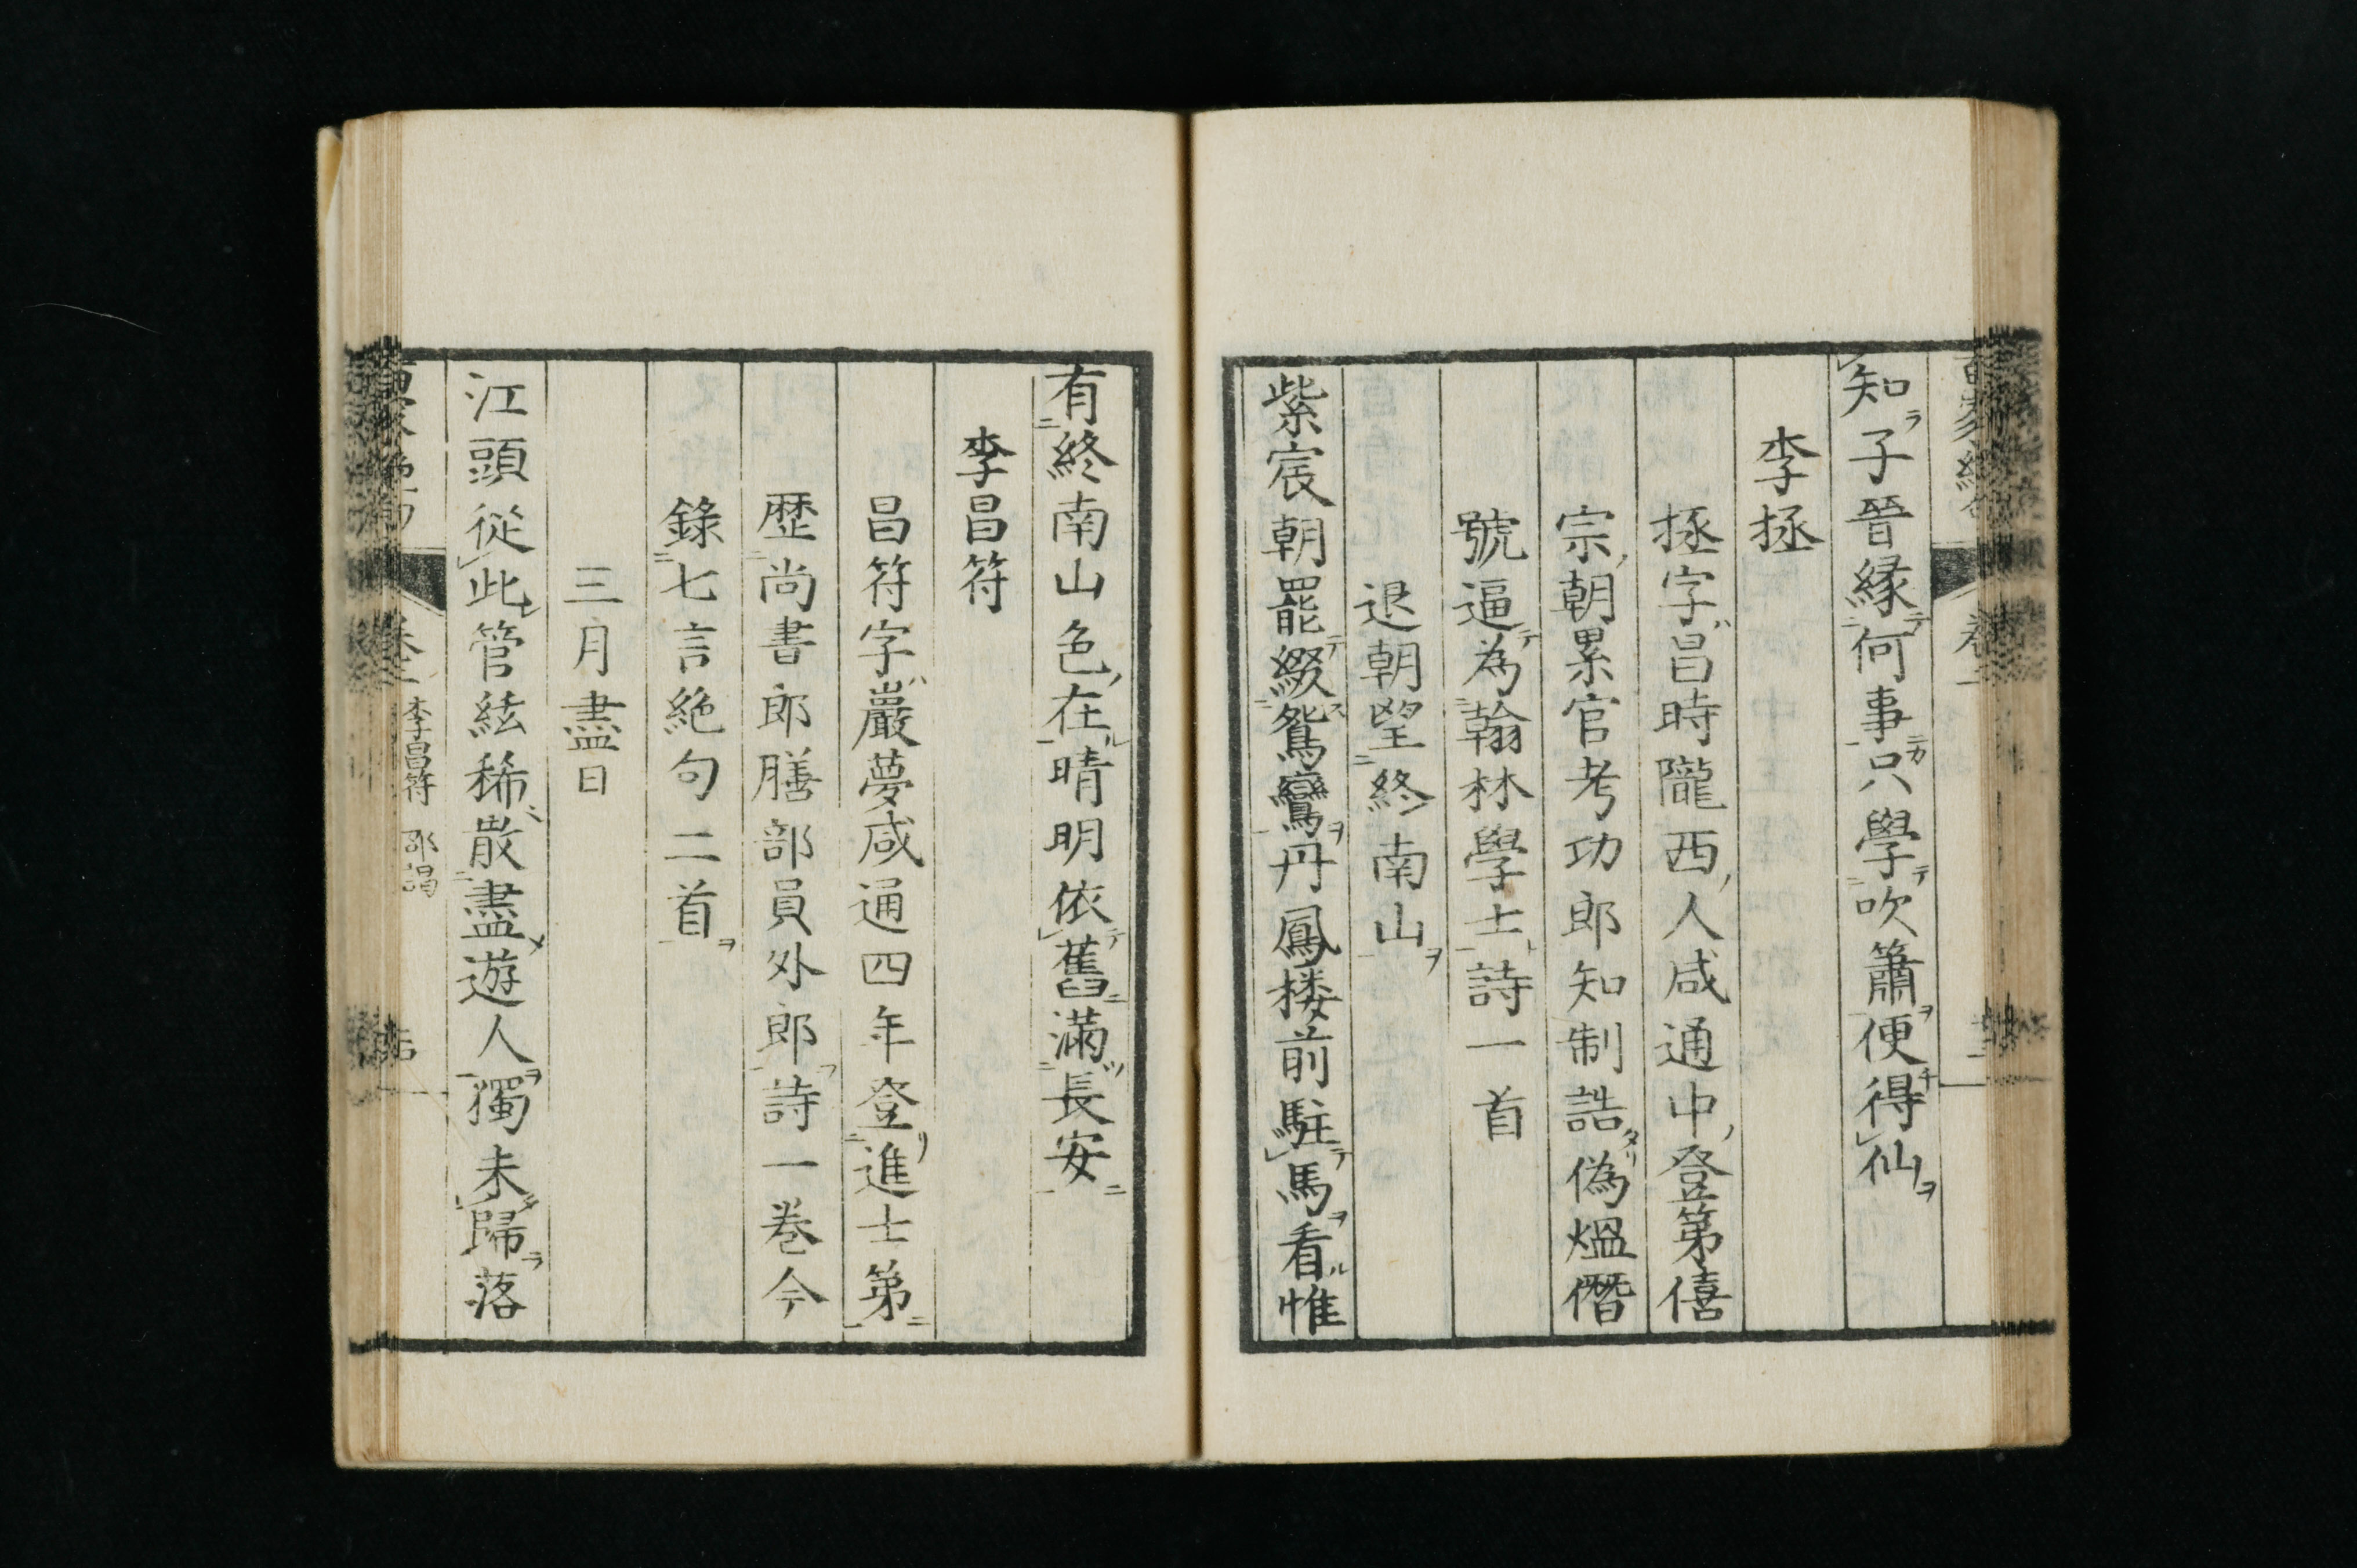 知子晉縁何事只學吹簫便得仙
李拯
拯字昌時隴西人咸通中登第僖
宗朝累官考功郎知制誥偽熅僭
號逼為翰林學士詩一首
退朝望終南山
紫宸朝罷綴鴛鸞丹鳳楼前駐馬看惟
有終南山色在晴明依舊滿長安
李昌符
昌符字巖夢咸通四年登進士第
歷尚書郎膳部員外郎詩一卷今
錄七言絶句二首
三月盡日
江頭從此管絃稀散盡遊人獨未歸落
李昌符 邵謁